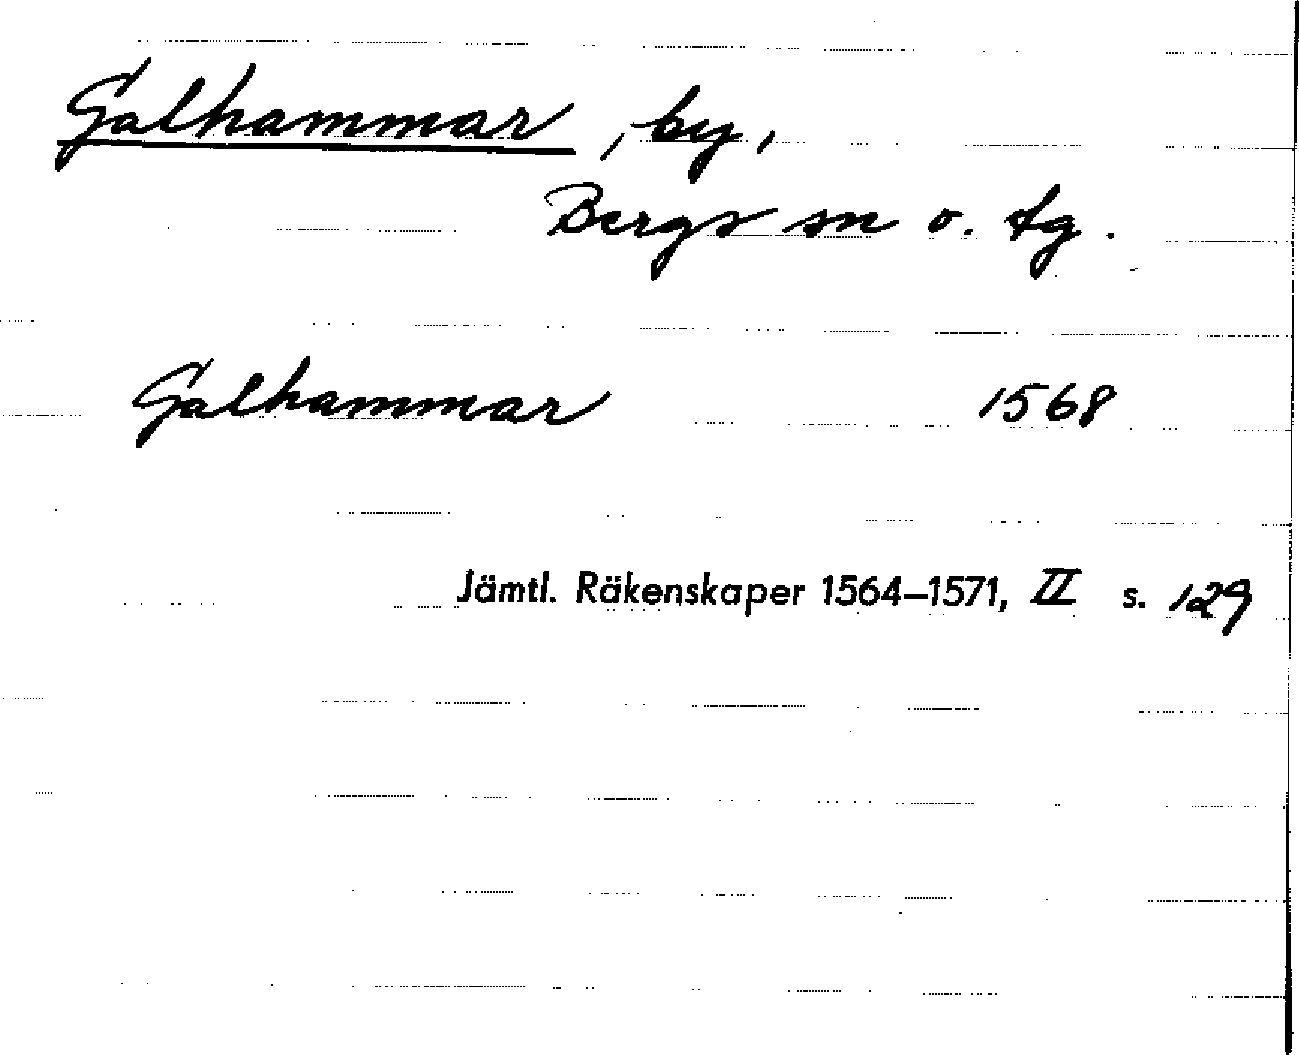 Galhammar, by,
Bergs sn o. tg.
Galhammar 1568
Jämtl. Räkenskaper 1564–1571, II s. 129